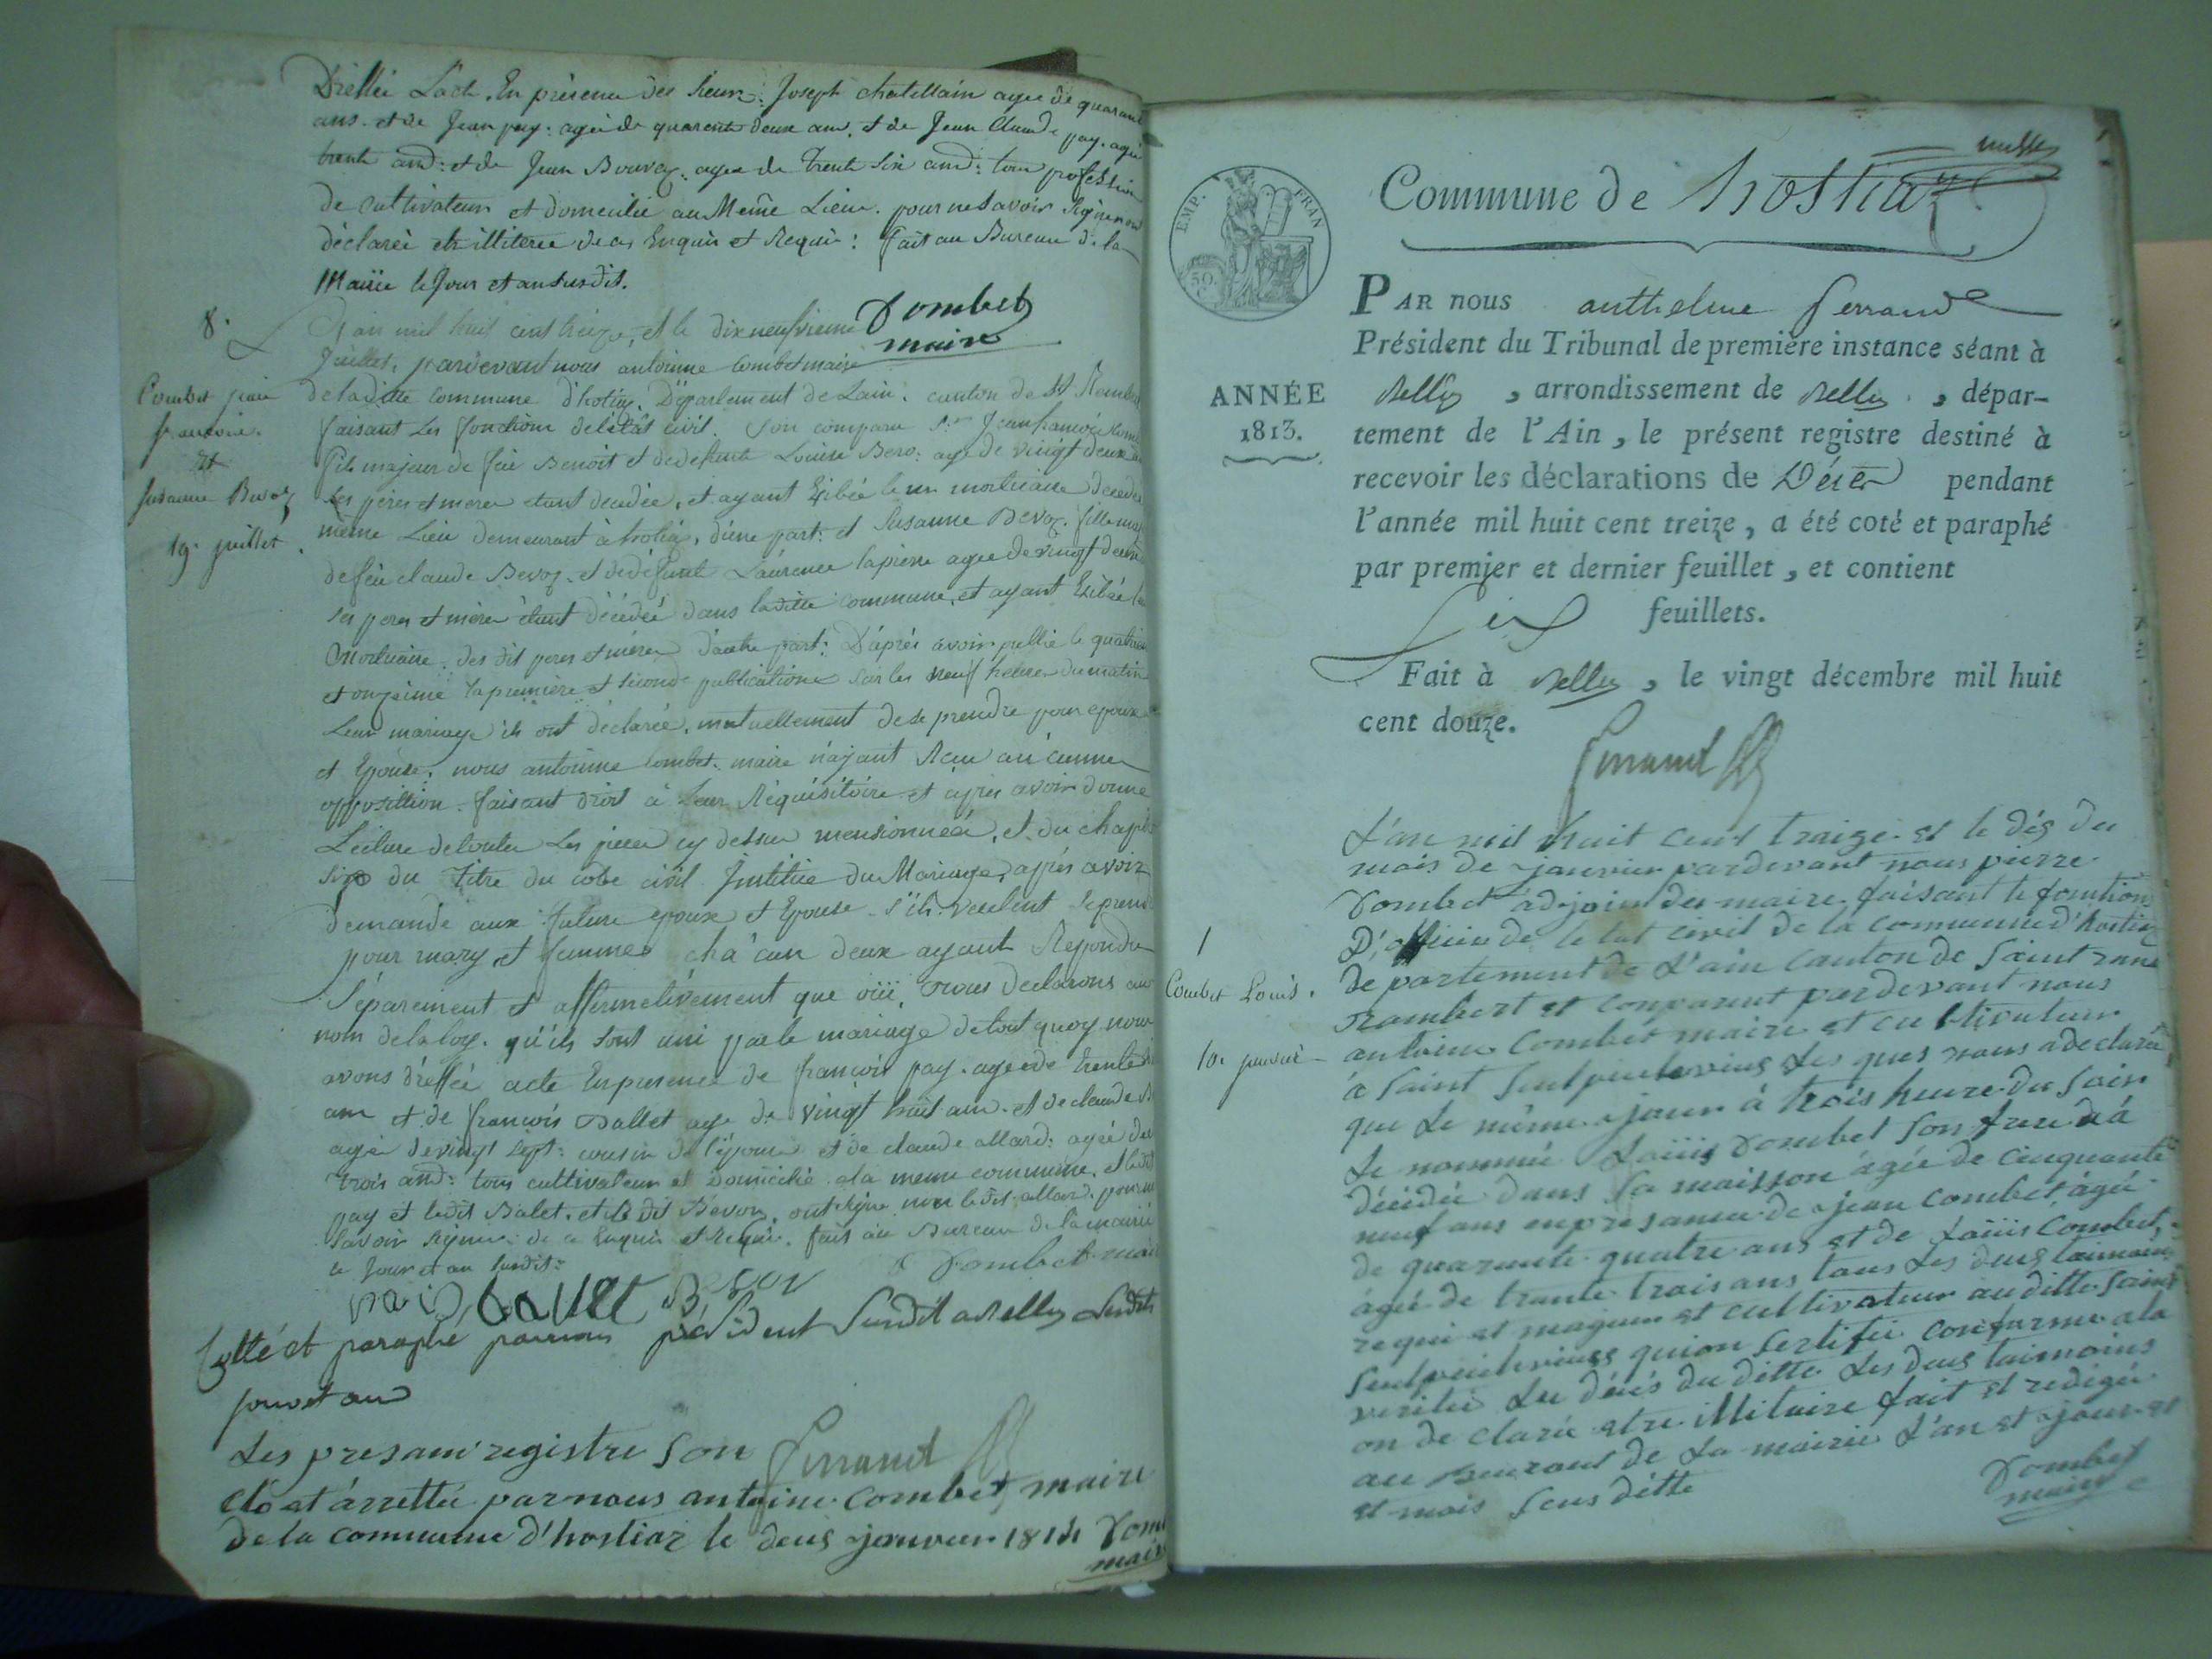 Dréssé Lacte. En présence des sieurs Joseph chatellain agée de quarante
ans. et de Jean pay. agée de quarente deux ans. et de Jean Claude pay. agée
trente ans: et de Jean Bouvez. agée de trente six ans: tous profession
de Cultivateurs et domicilié au Meme Lieu. pour ne savoir signer ont
déclarée etre illiterée de ce Enquis et Requis: fait au Bureau de la
Mairie le Jour et an susdit.
Combet
maire
8.
L'an mil huit cens treize, et le dix neufvieme
Juillet, pardevant nous antoinne Combet maire
Combet jean
francois.
et
Susanne Bevoz
19. juillet
de ladite commune d'hotiaz, Département de Lain. canton de St Rambert
faisant Les fonctions deletat civil. Son comparu Sr. Jean francois Combet
fils majeur de feu Benoit et dedefunte Louise Bevo: age de vingt deux ans
Les pères et mères etant decedée, et ayant Exibée leur mortuaire décédé
même Lieu demeurant à hotiaz, d'une part: et Susanne Bevoz. fille maj
de feu claude Bevoz. et dedéfunte Laurence lapierre agée de vingt deux
ses peres et mères étant décédée dans ladite commune, et ayant Exibée les
Mortuaire. des dit peres et mères d'autre part: D'après avoir publié le quatrieme
et onzieme la première et seconde publications sur les neuf heures du matin
Leur mariage ils ont déclarée, mutuellement de se prendre pour epoux
et Epouse: nous antoinne Combet. maire n'ayant Recu au'cunne
oppositiion. faisant droit à Leur Réquisitoire et après avoir donné
Lecture detoutes Les pieces cy dessus mensionneés, et du chapitre
six du Titre du code civil Jntitulé du Mariage, après avoir
demandé aux futurs epoux et Epouse s'ils veulent se prendre
pour mary et femmes cha'cun deux ayant Repondu
séparément et affirmativement que oüi, nous declarons au
nom de la loy. qu'ils sont uni par le mariage detout quoy nous
avons dréssée acte Enpresence de francois pay. agée de trente
ans et de francois Ballet age de vingt huit ans. et de claude B
agée de vingt sept: cousin de l'épouse et de claude allard: agée de
trois ans: tous cultivateurs et Domicilié a la meme commune. et ledit
pay et ledit Balet. et le dit Bevoz, ont signe non le dit allard. pour ne
savoir signer de ce Enquis et Requis. fait au Bureau de la mairie
le Jour et an susdit:
Combet maire
pais, ballet Bevoz
Cotté et paraphé par nous président susdit a Belley Lesdits
jour et an
Ferrand
Les presant registre son
clo et àrrettée par nous antoine Combet maire
de la commune d'hostiaz le deus janvier 1814 Combet
maire
EMP. FRAN
50. C
Commune de hostiaz
ANNÉE
1813.
PAR nous anthelme ferrand
Président du Tribunal de première instance séant à
Belley, arrondissement de Belley, dépar-
tement de l'Ain, le présent registre destiné à
recevoir les déclarations de Décès pendant
l'année mil huit cent treize, a été coté et paraphé
par premier et dernier feuillet, et contient
Six feuillets.
Fait à Belley, le vingt décembre mil huit
cent douze.
Ferrand
1
Combet Louis.
10. janvier
L'an mil huit cent traize et le dis du
mois de janvier pardevant nous pierre
Combet adjoin des maire faisant le fonctions
D'officie de le tat civil de la commune d'hostiaz
de partement de L'ain Canton de Saint rane
Rambert et comparut par devant nous
antoine Combet maire et cultivateur
à Saint Seulpice les ques nous a declarée
que Le même jour à trois heure du soir
Le nommé Loüis Combet son frere à
décédée dans sa maisson agée de cinquante
neuf ans en presance de jean Combet agée
de quarante quatre ans et de Loüis Combet
agée de trante trois ans tous Les deus taimoins
requi et mageur et cultivateur au ditte Saint
Seulpice quion sertifiée conforme a la
veritée Les décés du ditte Les deus taimoins
on de clarée etre illituire fait et redigée
au beuraut de La mairie L'an et jour et
et mois sens ditte
Combet
maire